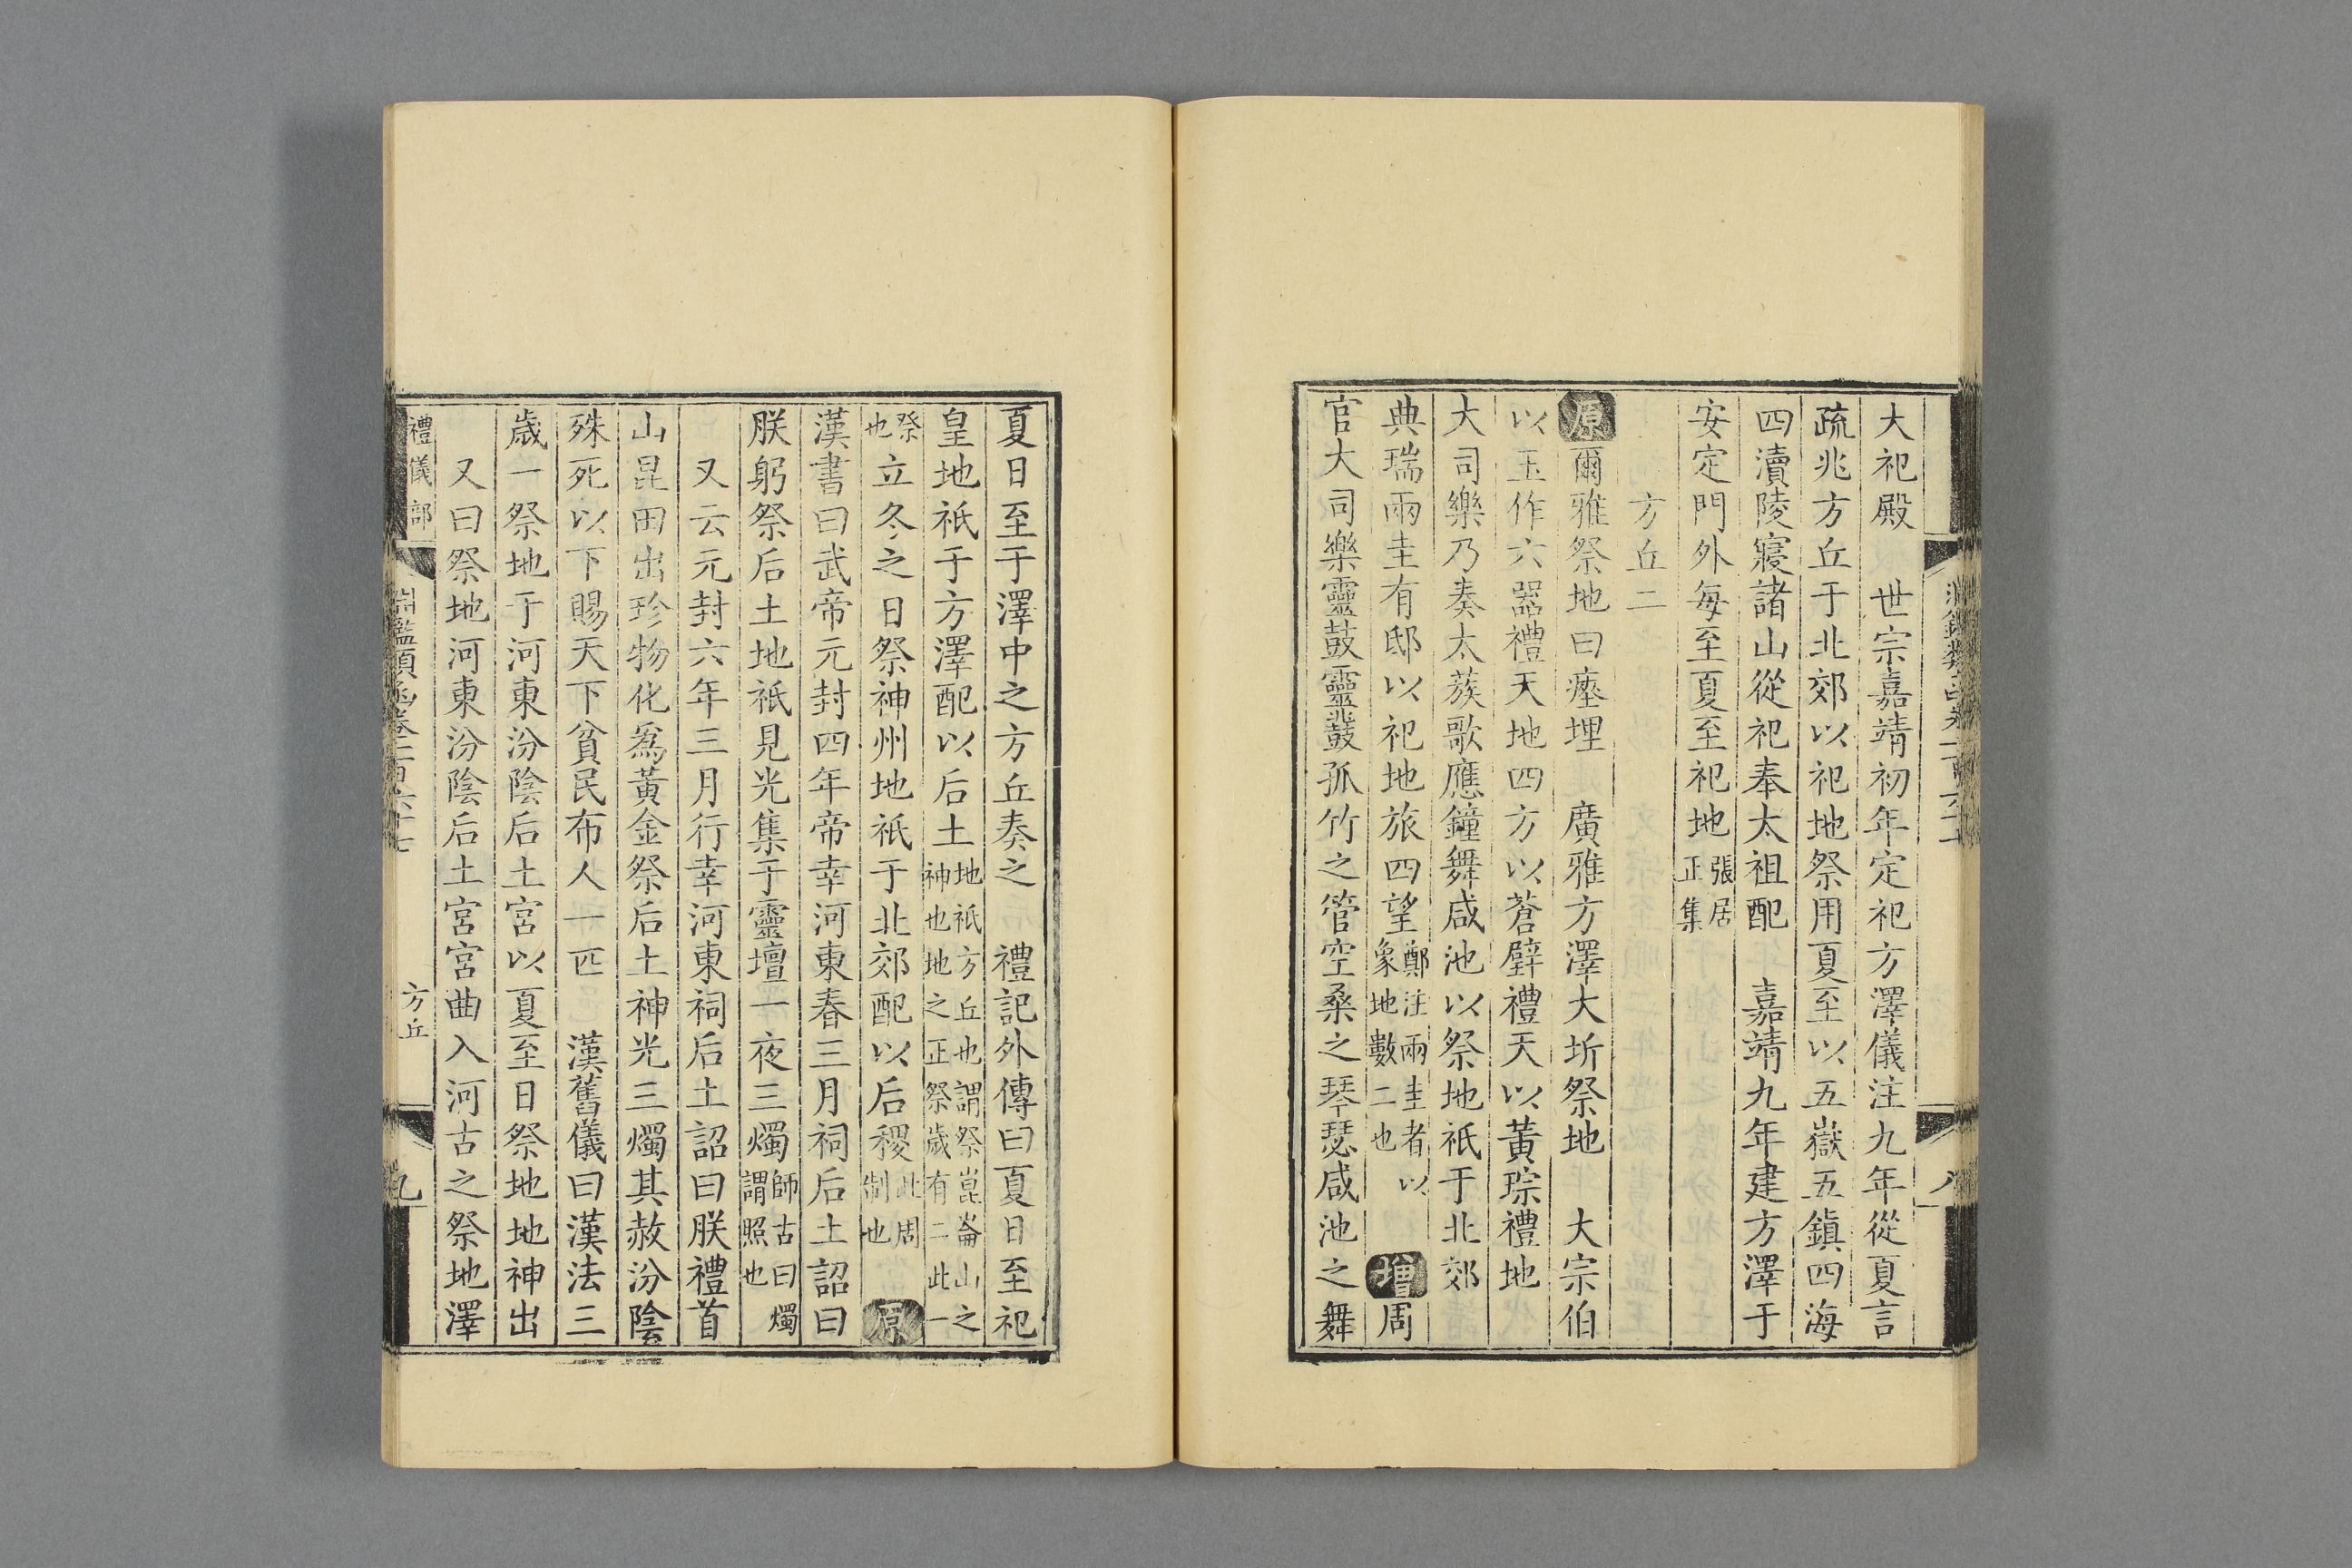 大祀殿　世宗嘉靖初年定祀方澤儀注九年從夏言
疏兆方丘于北郊以祀地祭用夏至以五嶽五鎮四海
四瀆陵寢諸山從祀奉太祖配　嘉靖九年建方澤于
安定門外每至夏至祀地張居正集
方丘二
原爾雅祭地曰瘞埋　廣雅方澤大圻祭地　大宗伯
以玉作六器禮天地四方以蒼璧禮天以黃琮禮地
大司樂乃奏太蔟歌應鐘舞咸池以祭地祇于北郊
典瑞兩圭有邸以祀地旅四望鄭注兩圭者以象地數二也　增周
官大司樂靈鼓靈鼗孤竹之管空桑之琴瑟咸池之舞
夏日至于澤中之方丘奏之　禮記外傳曰夏日至祀
皇地祇于方澤配以后土地祇方丘也謂祭崑崙山之神也地之正祭歲有二此一
祭也立冬之日祭神州地祇于北郊配以后稷此周制也　原
漢書曰武帝元封四年帝幸河東春三月祠后土詔曰
朕躬祭后土地祇見光集于靈壇一夜三燭師古曰燭謂照也
又云元封六年三月行幸河東祠后土詔曰朕禮首
山昆田出珍物化為黃金祭后土神光三燭其赦汾陰
殊死以下賜天下貧民布人一匹　漢舊儀曰漢法三
歲一祭地于河東汾陰后土宮以夏至日祭地地神出
又曰祭地河東汾陰后土宮宮曲入河古之祭地澤
禮儀部
淵鑑類函卷一百六十七
方丘
九